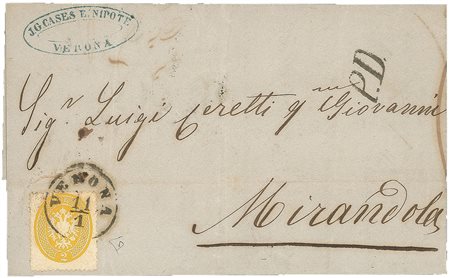 J.G. CASES E NIPOTE
VERONA
P.D.
Sigʳ Luigi Ceretti qᵐ Giovanni
VERONA
11/1
Mirandola
2